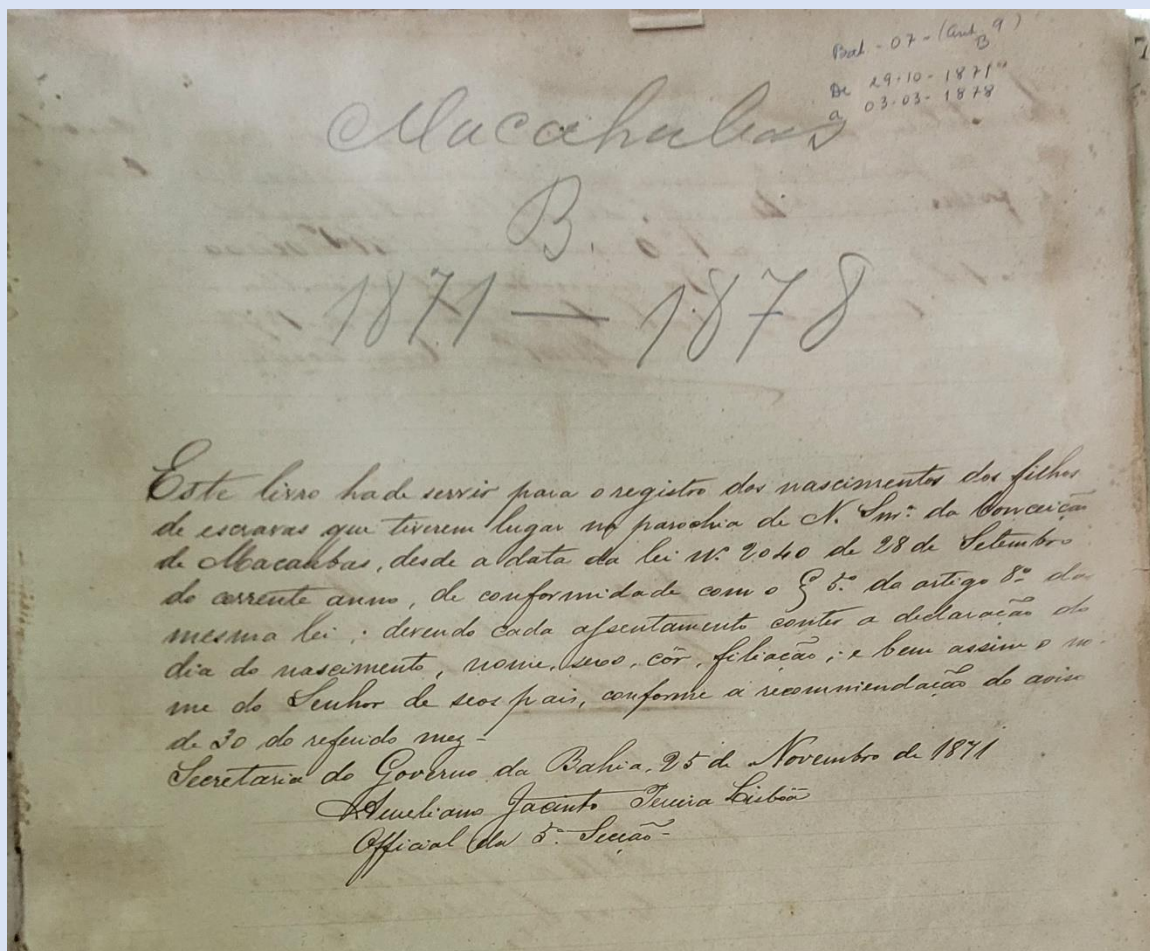 Bat - 07 - (ant. 9)
B
De 29-10-1871
a 03-03-1878
Macahubas
B.
1871 — 1878
Este livro hade servir para o registro dos nascimentos dos filhos
de escravas que tiverem lugar na parochia de N. Snrª. da Conceição
de Macaubas, desde a data da lei Nº 2040 de 28 de Setembro
do corrente anno, de conformidade com o § 5º do artigo 8º da
mesma lei; devendo cada assentamento conter a declaração do
dia do nascimento, nome, sexo, côr, filiação; e bem assim o no-
me do Senhor de seos pais, conforme a recommendação do aviso
de 30 do referido mez-
Secretaria do Governo da Bahia, 25 de Novembro de 1871
Aureliano Jacinto Pereira Lisbôa
Official da 5ª Secção-